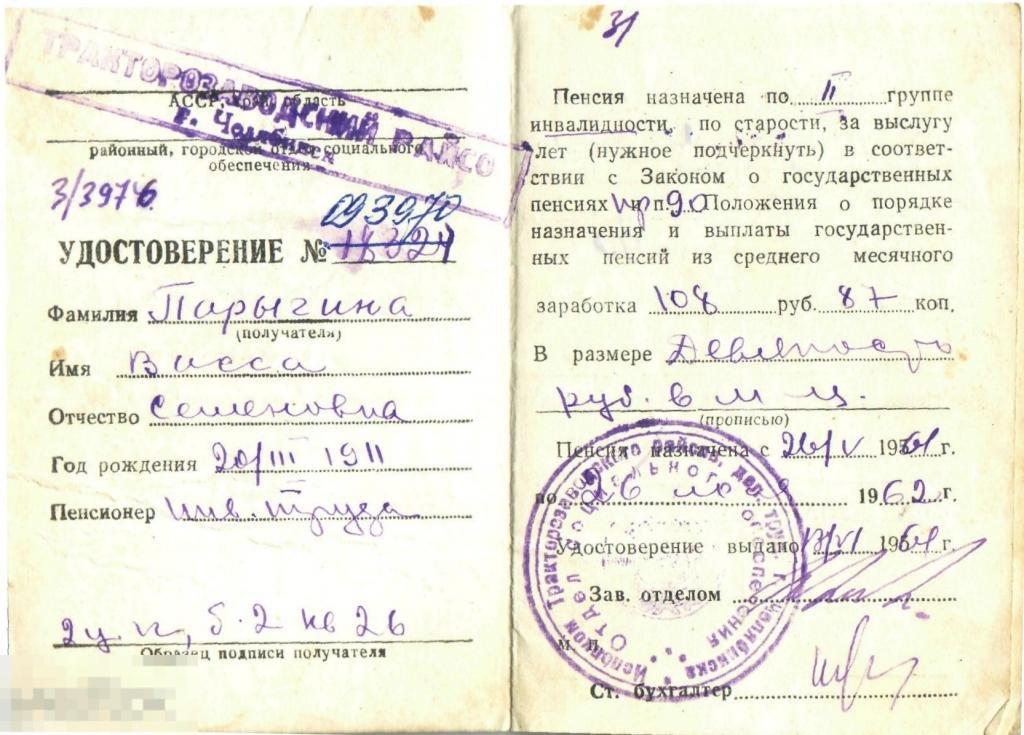 ТРАКТОРОЗАВОДСКИЙ РАЙСО
г. Челябинска
АССР, край, область
районный, городской отдел социального
обеспечения
3/3976
093970
УДОСТОВЕРЕНИЕ № 18324
Фамилия Парыгина
(получателя)
Имя Васса
Отчество Семеновна
Год рождения 20/III 1911
Пенсионер инв. труда
кв 26
Образец подписи получателя
31
Пенсия назначена по II группе
инвалидности, по старости, за выслугу
лет (нужное подчеркнуть) в соответ-
ствии с Законом о государственных
пенсиях и п. 90 Положения о порядке
назначения и выплаты государствен-
ных пенсий из среднего месячного
заработка 108 руб. 87 коп.
В размере Девяносто
руб. в м-ц.
(прописью)
Пенсия назначена с 26/V 1961 г.
по 1962 г.
Удостоверение выдано 1961 г.
Зав. отделом
М. П.
Ст. бухгалтер
Исполком Тракторозаводского райсов. деп. труд. г. Челябинска
Отдел социального обеспечения